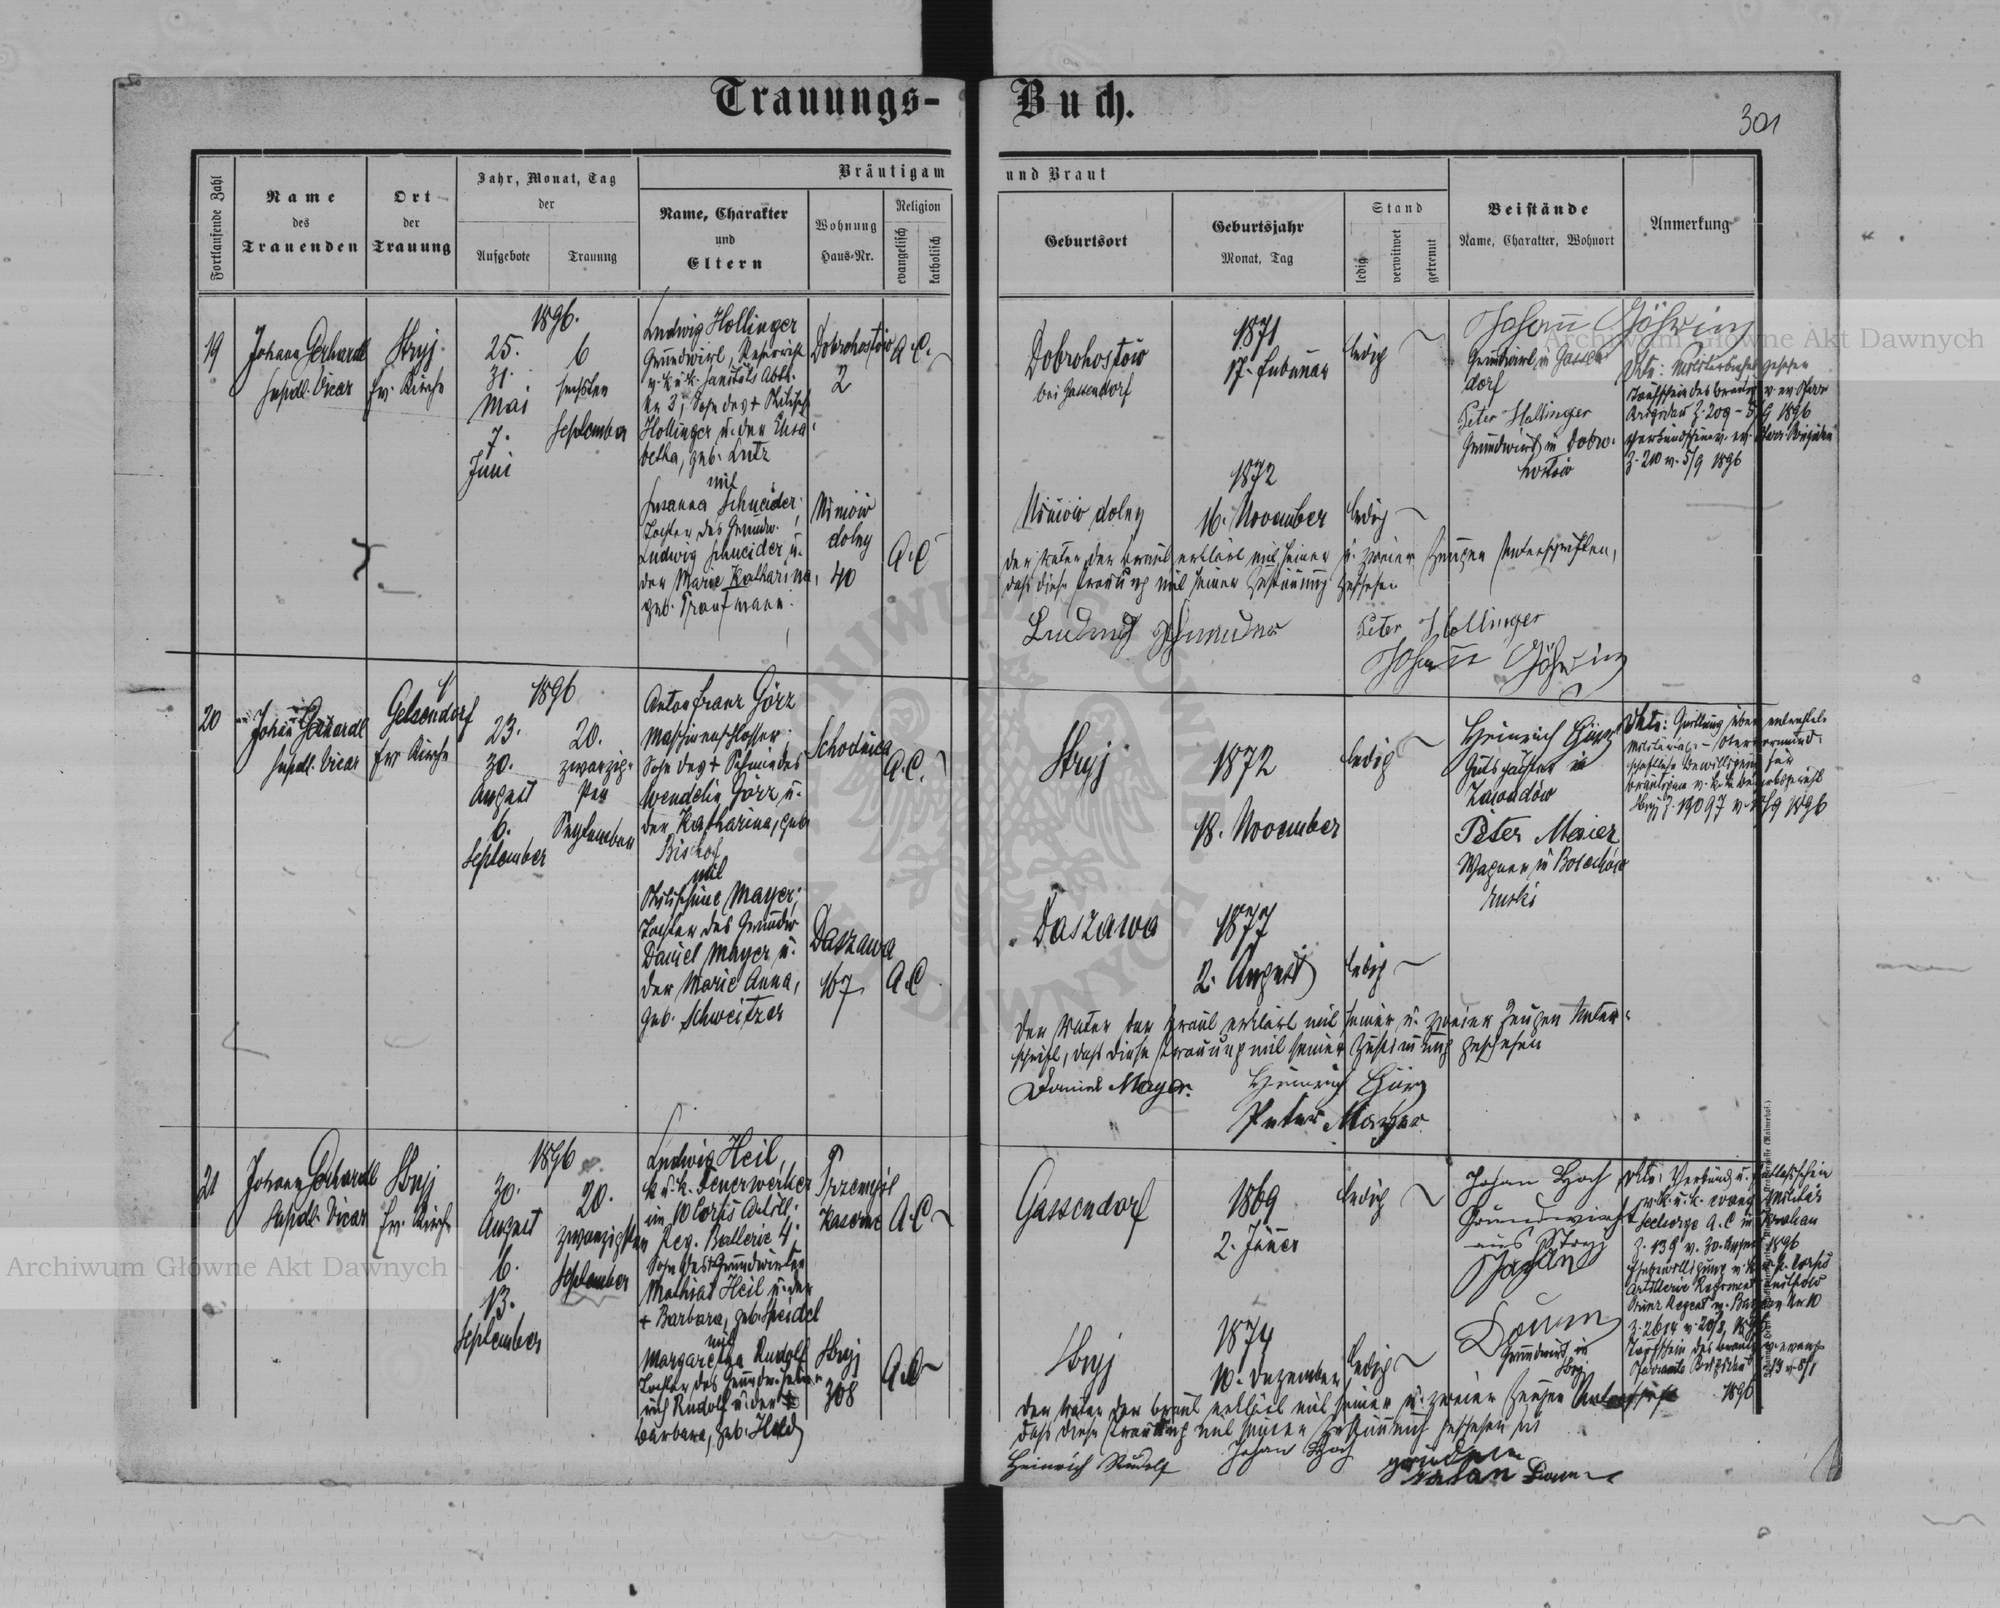 Trauungs-Buch.
301
Fortlaufende Zahl
Name
des
Trauenden
Ort
der
Trauung
Jahr, Monat, Tag
der
Aufgebote
Trauung
Bräutigam und Braut
Name, Charakter
und
Eltern
Wohnung
Haus-Nr.
Religion
evangelisch
katholisch
Geburtsort
Geburtsjahr
Monat, Tag
Stand
ledig
verwitwet
getrennt
Beistände
Name, Charakter, Wohnort
Anmerkung
19
Johann Gerhardt
Supdt. Vicar
Stryj
Ev. Kirche
1896.
25.
31.
Mai
7.
Juni
6
sechsten
September
Ludwig Hollinger
Grundwirt, Reservist
v. k. u. k. Sanitäts Abtl.
Nr 3, Sohn des + Philipp
Hollinger u. der Elisa-
betha, geb. Lutz
mit
Susanna Schneider,
Tochter des Grundw.
Ludwig Schneider u.
der Marie Katharina,
geb. Trautmann.
Dobrohostów
2
A.C.
Winiów
dolny
40
A.C
Dobrohostów
bei Gassendorf
1871
17. Februar
ledig
Winiów dolny
1872
16. November
ledig
Johann Göhring
Grundwirt in Gassen-
dorf
Peter Hollinger
Grundwirt in Dobro-
hostów
Z. 209 - 5/9 1896
Z. 210 v. 5/9 1896
Der Vater der Braut erklärt mit seiner u. zweier Zeugen Unterschriften,
dass diese Trauung mit seiner Zustimmung geschehen
Ludwig Schneider
Peter Hollinger
Johann Göhring
20
Johann Gerhardt
Supdt. Vicar
Gelsendorf
Ev Kirche
1896
23.
30.
August
6.
September
20.
zwanzig-
sten
September
Anton Franz Görz
Maschinenschlosser
Sohn des + Schmiedes
Wendelin Görz u.
der Katharina, geb
Bischof
mit
Philippine Mayer,
Tochter des Grundw
Daniel Mayer u.
der Marie Anna,
geb. Schweitzer
Schodnica
A.C.
Daszawa
167
A.C
Stryj
1872
18. November
ledig
Daszawa
1877
2. August
ledig
Heinrich Görz
Gutspächter in
Zawadów
Peter Maier
Wagner in Bolechów
ruski
Stryj Z. 19097 v. 15/9 1896
Der Vater der Braut erklärt mit seiner u. zweier Zeugen Unter-
schrift, dass diese Trauung mit seiner Zustimmung geschehen
Daniel Mayer.
Heinrich Görz
Peter Mayer
21
Johann Gerhardt
Supdt. Vicar
Stryj
Ev. Kirche
1896
30.
August
6.
13.
September
20.
zwanzigsten
September
Ludwig Heil,
k. u. k. Feuerwerker
im 10 Corps Artill.
Reg. Batterie 4,
Sohn des Grundwirten
Mathias Heil u. der
+ Barbara, geb. Speidel
mit
Margaretha Rudolf
Tochter des Grundw. Hein-
rich Rudolf u. der
Barbara, geb. Held
Przemysl
Kaserne
A.C
Stryj
308
A.C
Gassendorf
1869
2. Jäner
ledig
Stryj
1874
10. Dezember
ledig
Johan Hoch
Grundwirth
aus Stryj
Johan
Daum
Grundwirt in
Stryj
Z. 139 v. 30. August 1896
1896
Der Vater der Braut erklärt mit seiner u. zweier Zeugen Unterschrift
dass diese Trauung mit seiner Zustimmung geschehen ist
Heinrich Rudolf
Johan Hoch
Johan Daum
Archiwum Główne Akt Dawnych
Archiwum Główne Akt Dawnych
ARCHIWUM GŁÓWNE AKT DAWNYCH